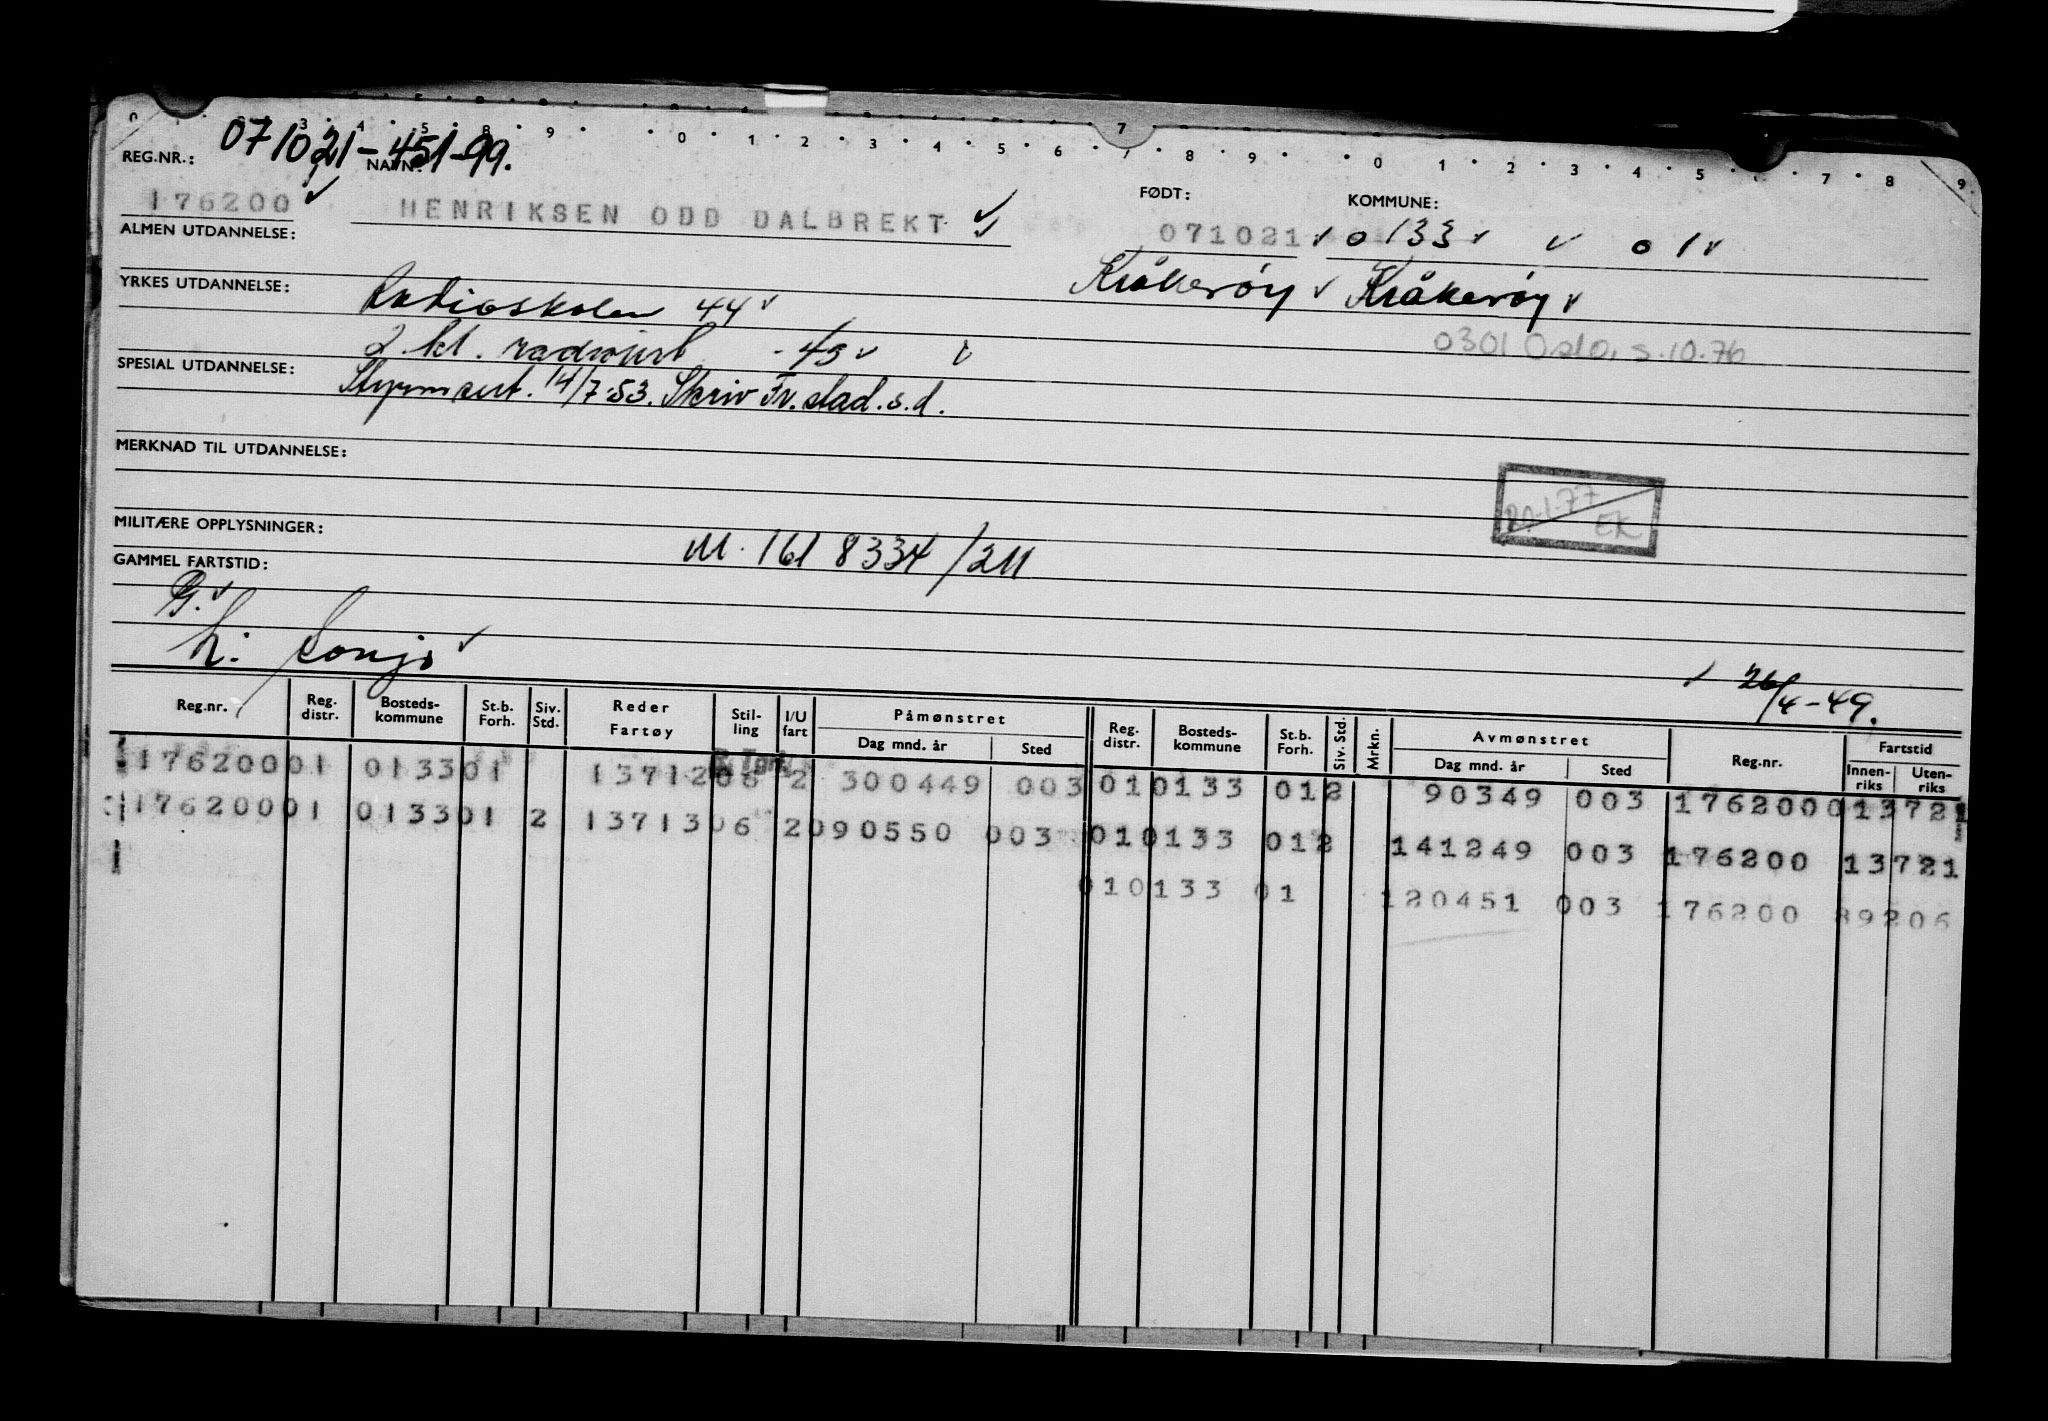 071021-451-99.
REG.NR.: NAVN: FØDT: KOMMUNE:
176200 HENRIKSEN ODD DALBREKT 071021 0133 01
ALMEN UTDANNELSE: Kråkerøy Kråkerøy
YRKES UTDANNELSE: Radioskolen 44
2. kl. radiosert - 45 0301 Oslo, s.10.76
SPESIAL UTDANNELSE: Styrmsert. 14/7-53. Skriv Fr.stad. s.d.
MERKNAD TIL UTDANNELSE:
20-1-77
EK
MILITÆRE OPPLYSNINGER: M. 161 8334/211
GAMMEL FARTSTID:
h. Sonja
26/4-49.
Reg.nr. Reg. distr. Bosteds-kommune St.b. Forh. Siv. Std. Reder Fartøy Stil-ling I/U fart Påmønstret Dag mnd. år Sted Reg. distr. Bosteds-kommune St.b. Forh. Siv. Std. Mrkn. Avmønstret Dag mnd. år Sted Reg.nr. Fartstid Innen-riks Uten-riks
17620001 013301 1371206 2 300449 003 010133 012 90349 003 1762000 13721
17620001 013301 2 1371306 2090550 003 010133 012 141249 003 176200 13721
010133 01 120451 003 176200 89206